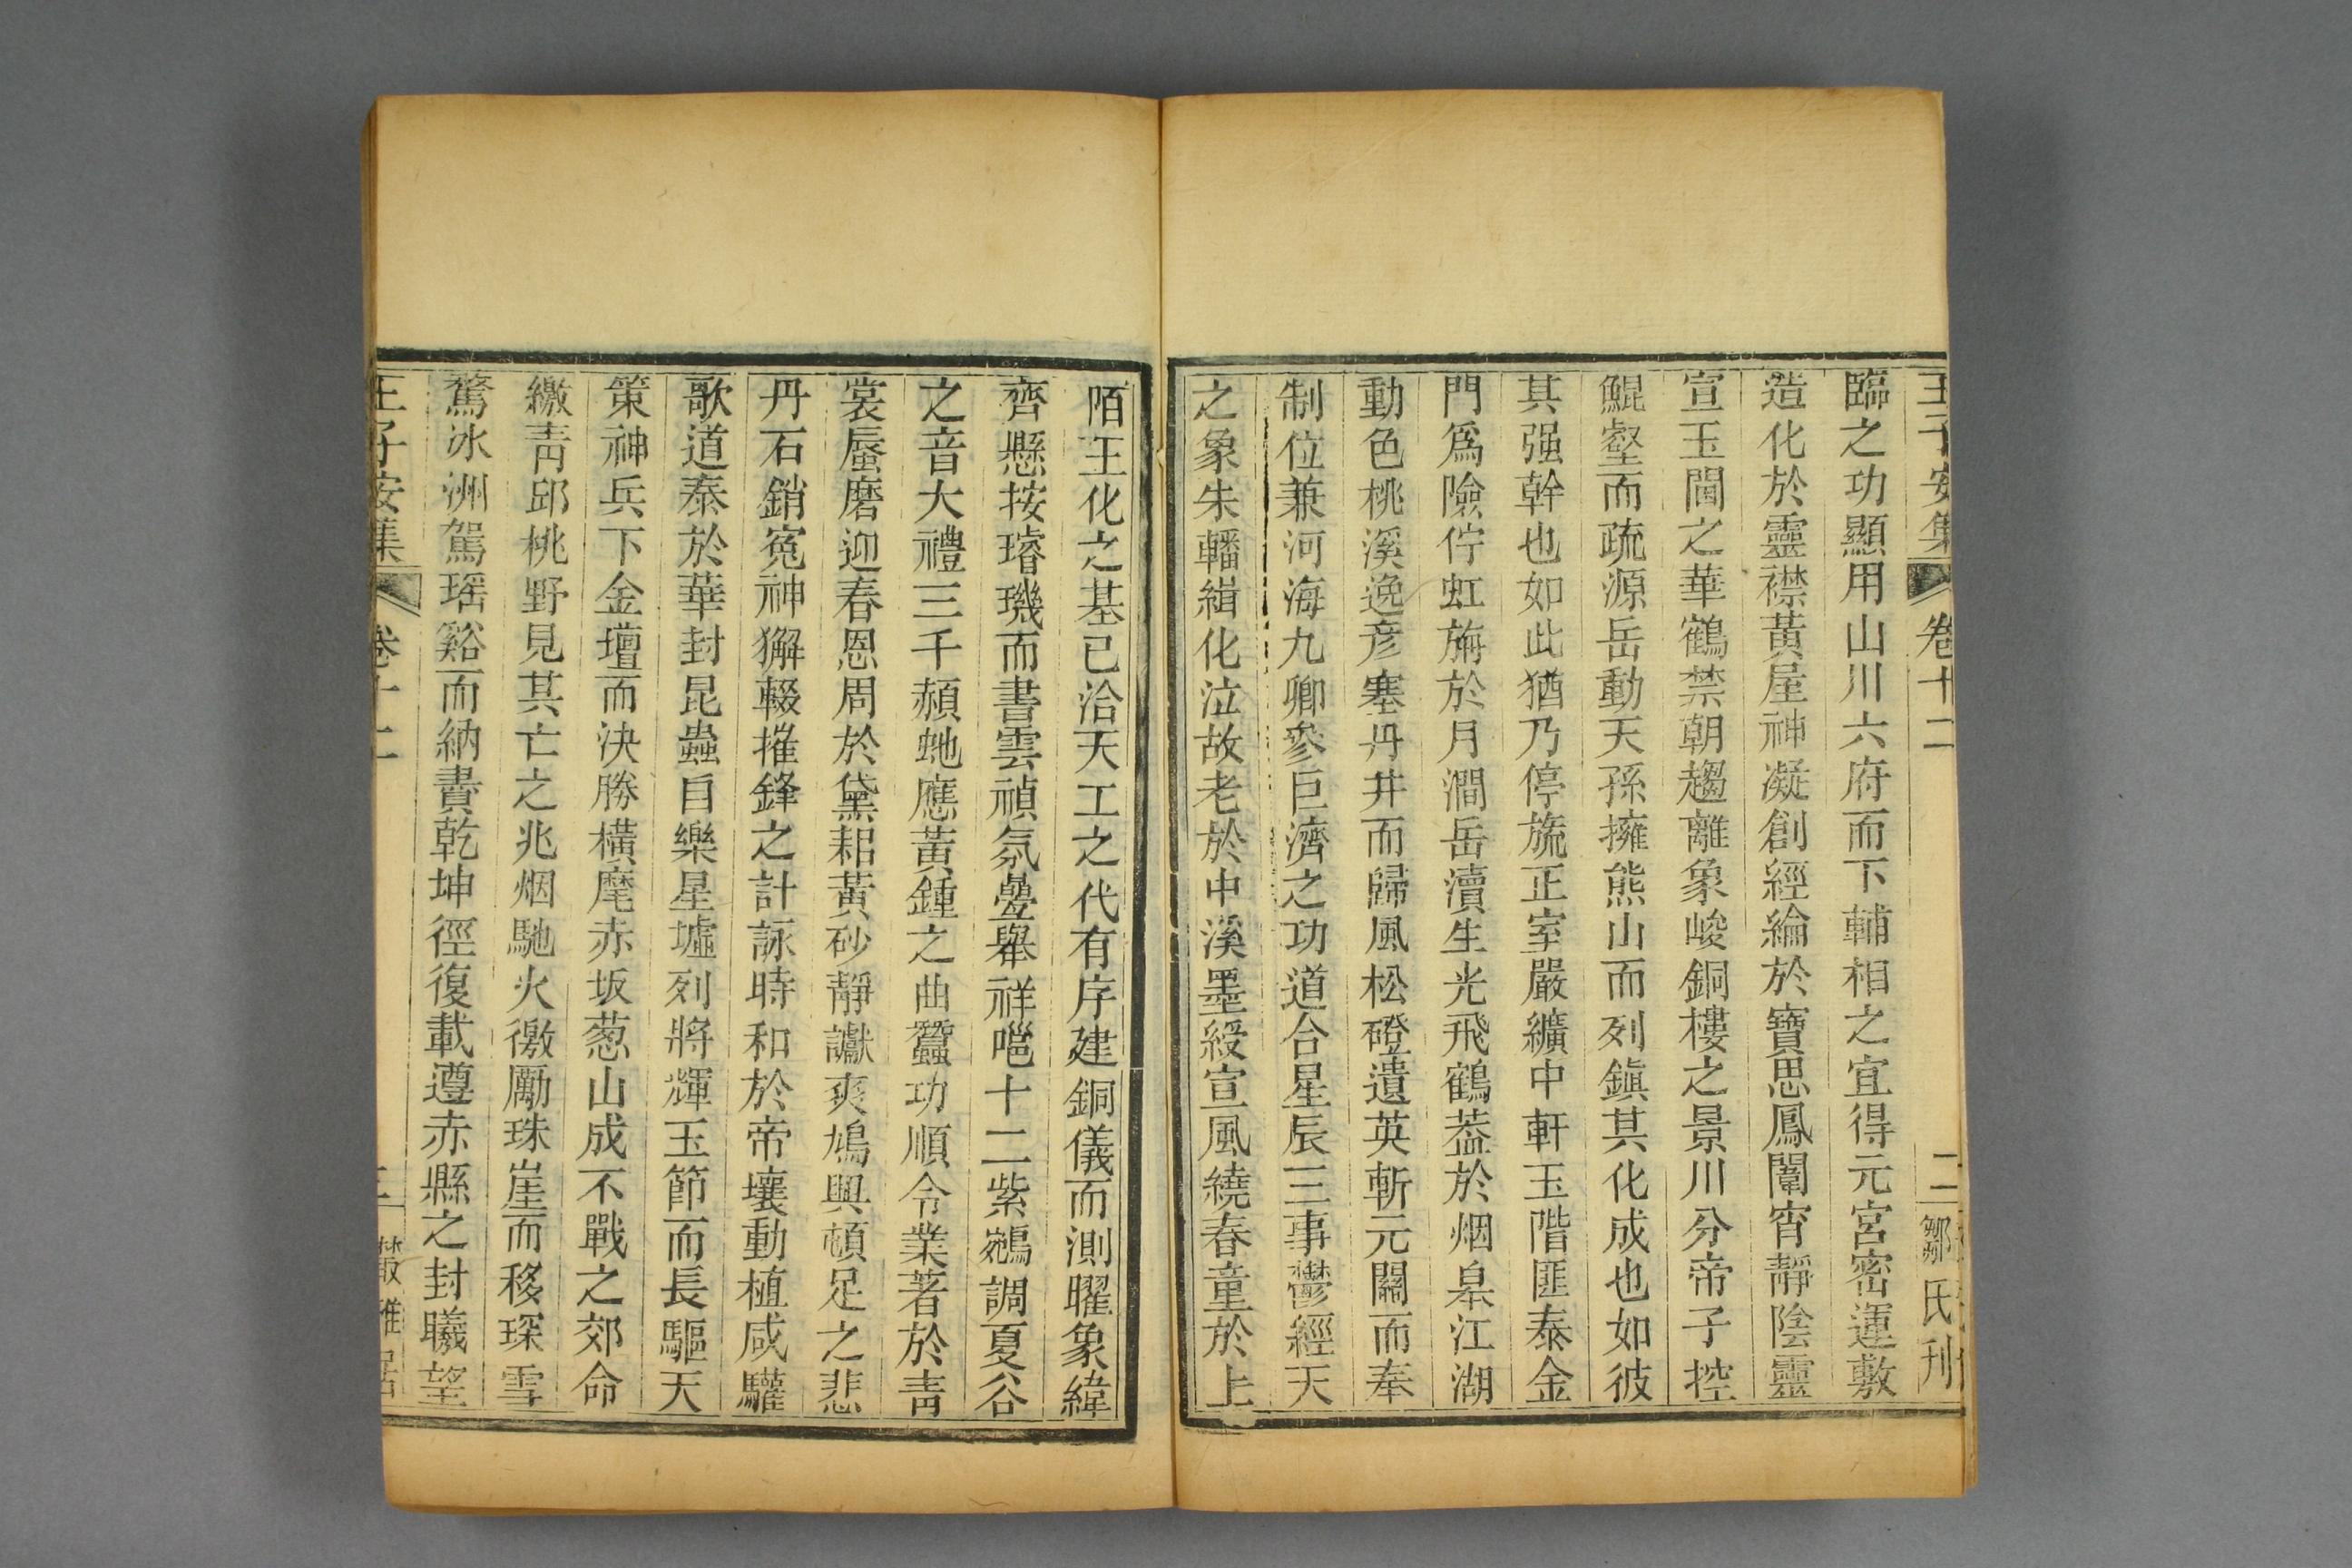 王子安集 卷十二 二 鄒氏刊
臨之功顯用山川六府而下輔相之宜得元宮密運敷
造化於靈襟黃屋神凝創經綸於寶思鳳闈宵靜陰靈
宣玉閫之華鶴禁朝趨離象峻銅樓之景川分帝子控
鯤壑而疏源岳動天孫擁熊山而列鎮其化成也如彼
其强幹也如此猶乃停旒正室嚴纊中軒玉階匪泰金
門爲險佇虹旃於月澗岳瀆生光飛鶴葢於烟皐江湖
動色桃溪逸彦塞丹井而歸風松磴遺英斬元關而奉
制位兼河海九卿參巨濟之功道合星辰三事鬱經天
之象朱轓緝化泣故老於中溪墨綬宣風繞春童於上
陌王化之基已洽天工之代有序建銅儀而測曜象緯
齊懸按璿璣而書雲禎氛疊舉祥嘥十二紫鵷調夏谷
之音大禮三千赬虵應黃鍾之曲蠶功順令業著於靑
裳蜃磨迎春恩周於黛耜黃砂靜讞爽鳩興頓足之悲
丹石銷寃神獬輟摧鋒之計詠時和於帝壤動植咸驩
歌道泰於華封昆蟲自樂星墟列將輝玉節而長驅天
策神兵下金壇而決勝橫麾赤坂葱山成不戰之郊命
繳靑邱桃野見其亡之兆烟馳火徼勵珠崖而移琛雪
驚冰洲駕瑶谿而納賮乾坤徑復載遵赤縣之封曦望
王子安集 卷十二 三 叢雅居